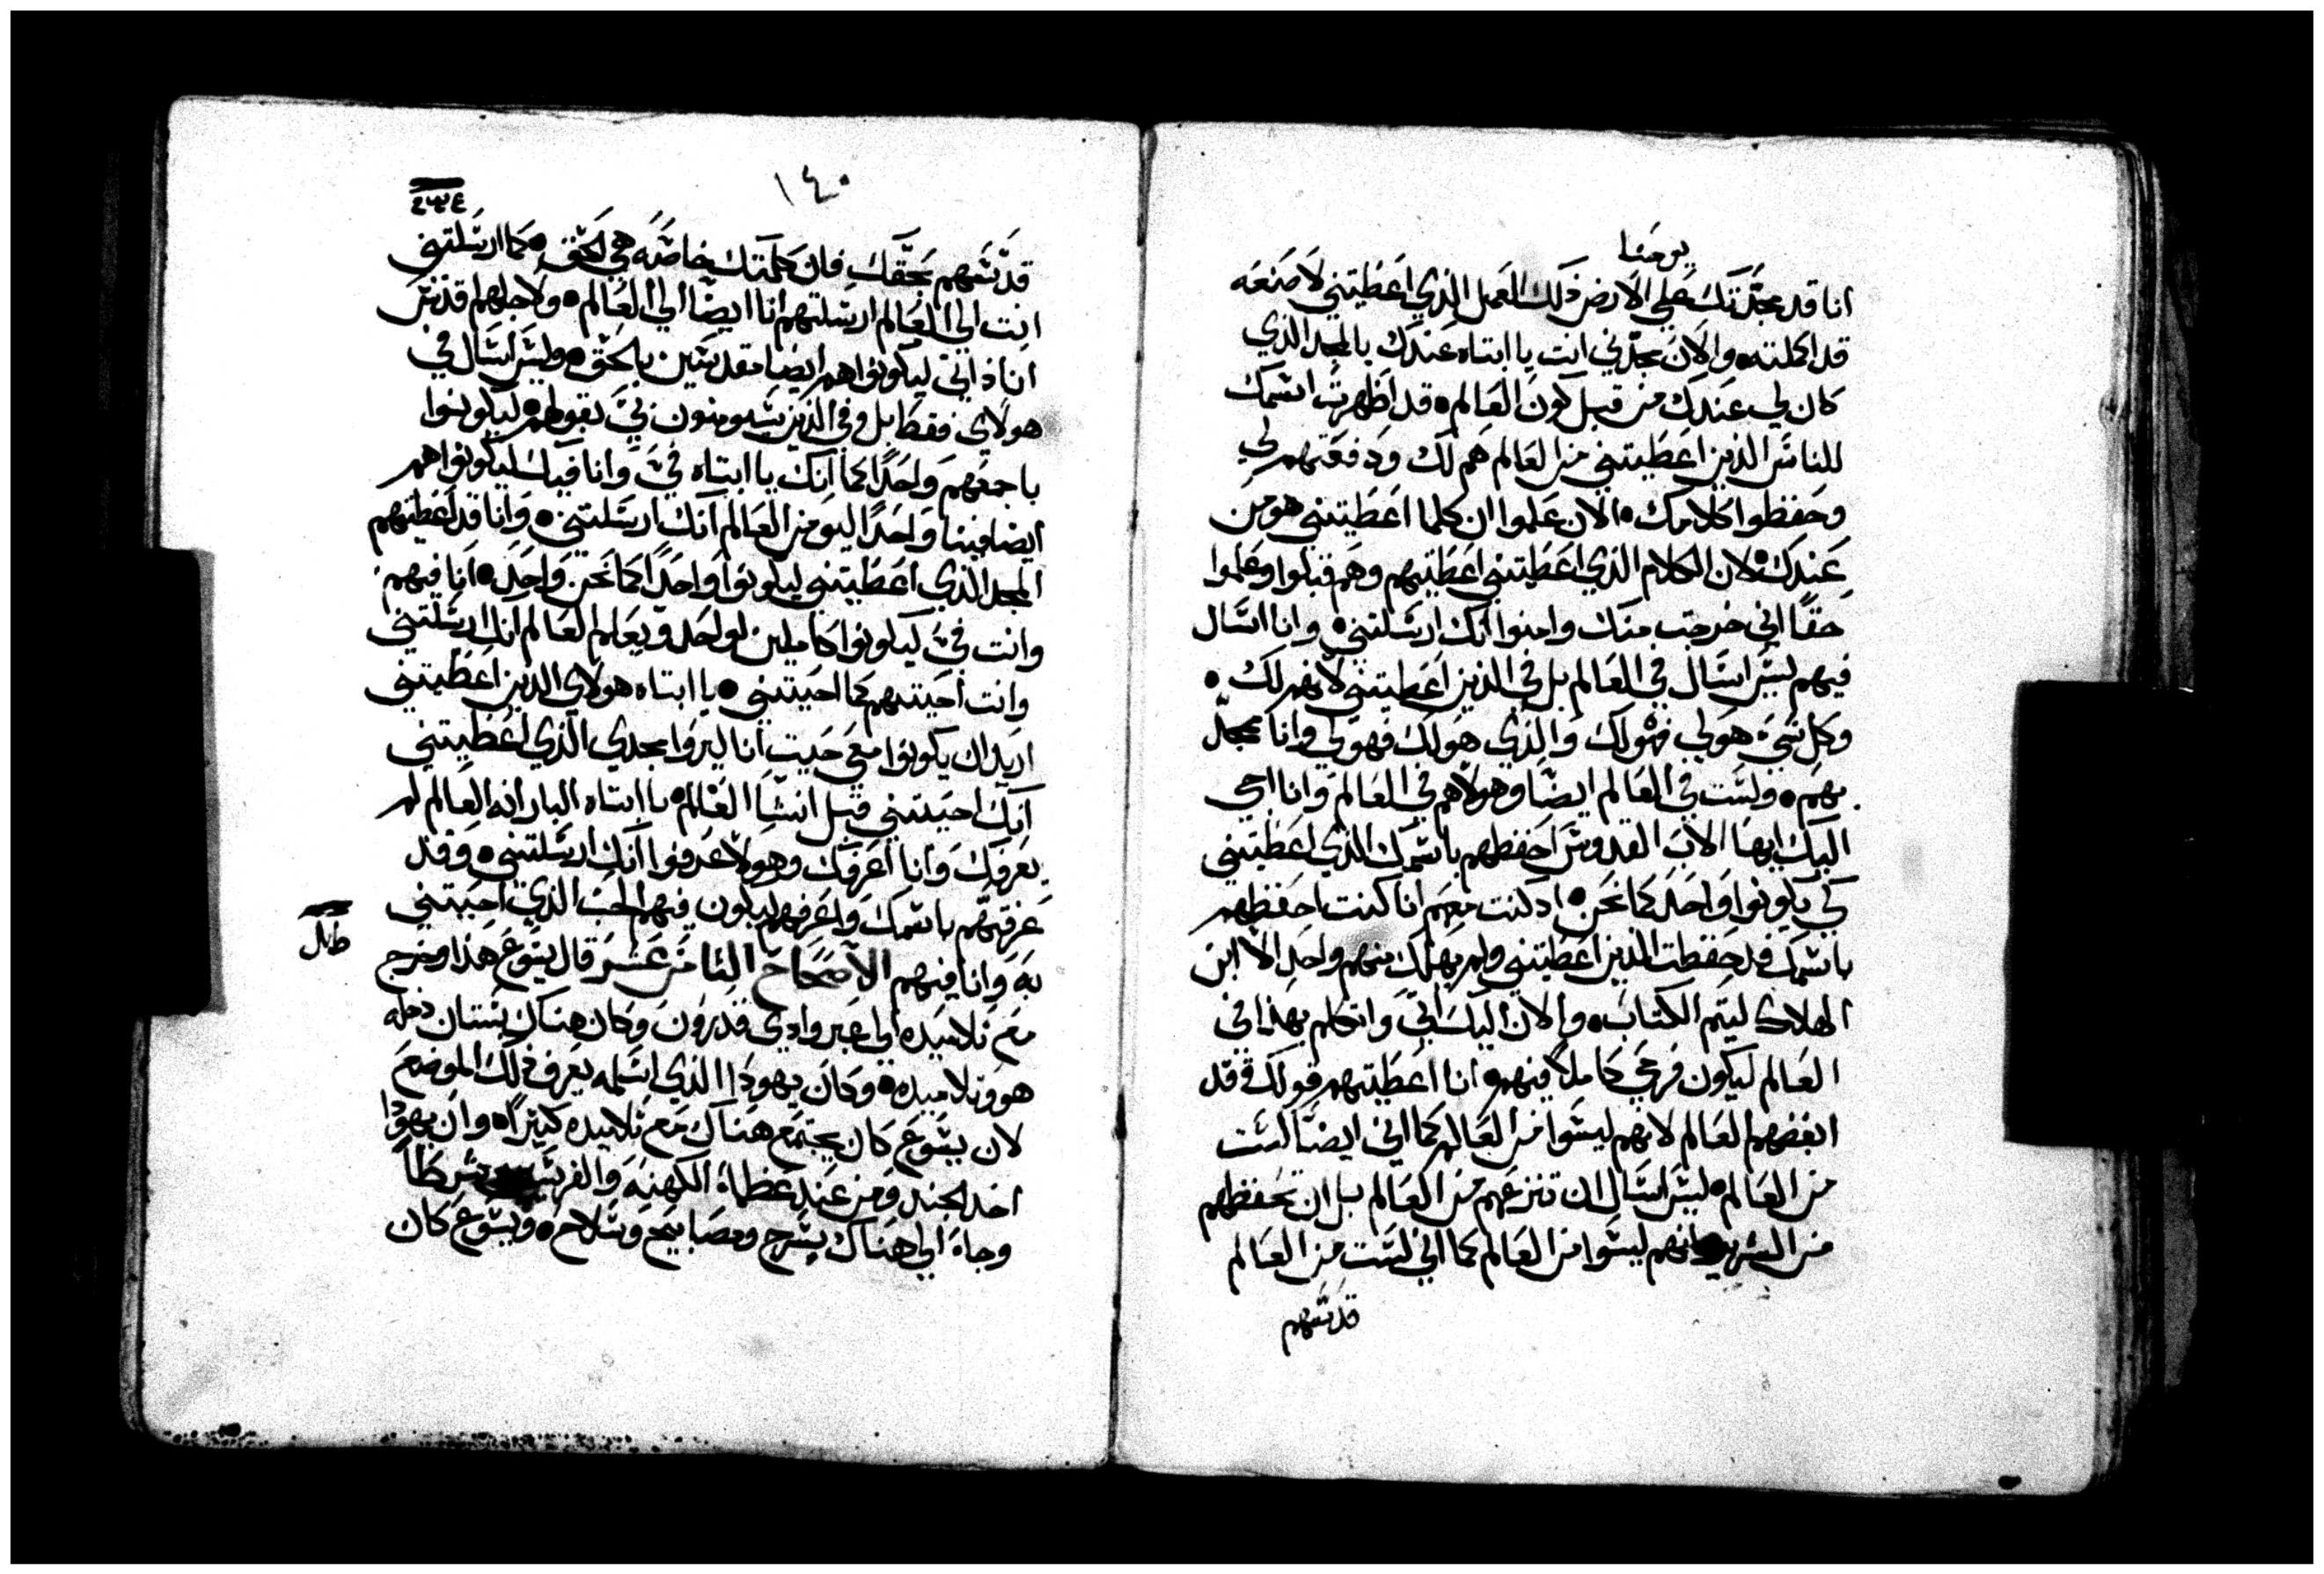 يوحنا
انا قد مجدتك علي الارض ذلك العمل الذي اعطيتني لاصنعه
قد اكملته والان مجدني انت يا ابتاه عندك بالمجد الذي
كان لي عندك من قبل كون العالم قد اظهرت اسمك
للناس الذين اعطيتني من العالم هم لك ودفعتهم لي
وحفظوا كلامك الان علموا ان كلما اعطيتني هو من
عندك لان الكلام الذي اعطيتني اعطيتهم وهم قبلوا وعلموا
حقا اني خرجت منك وامنوا انك ارسلتني وانا اسال
فيهم ليس اسال في العالم بل في الذين اعطيتني لانهم لك
وكل شي هو لي فهو لك والذي هو لك فهو لي وانا ممجد
بهم ولست في العالم ايضا وهولاهم في العالم وانا اجي
اليك ايها الاب القدوس احفظهم باسمك الذي اعطيتني
لكي يكونوا واحد كما نحن اد كنت معهم انا كنت احفظهم
باسمك قد حفظت الذين اعطيتني ولم يهلك منهم واحد الا ابن
الهلاك ليتم الكتاب والان اليك اتي واتكلم بهذا في
العالم ليكون فرحي كاملا فيهم انا اعطيتهم قولك وقد
ابغضهم العالم لانهم ليسوا من العالم كما اني ايضا لست
من العالم ليس اسال ان تنزعهم من العالم بل ان تحفظهم
من الشرير انهم ليسوا من العالم كما اني لست من العالم
قدسهم
١٤٠
قدسهم بحقك فان كلمتك خاصه هي الحق كما ارسلتني
انت الي العالم ارسلتهم انا ايضا الي العالم ولاجلهم اقدس
انا ذاتي ليكونوا هم ايضا مقدسين بالحق وليس اسال في
هولاي فقط بل وفي الذين سيومنون بي بقولهم ليكونوا
باجمعهم واحدا كما انك يا ابتاه في وانا فيك ليكونوا هم
ايضا فينا واحدا ليومن العالم انك ارسلتني وانا قد اعطيتهم
المجد الذي اعطيتني ليكونوا واحدا كما نحن واحد انا فيهم
وانت في ليكونوا كاملين لواحد ويعلم العالم انك ارسلتني
وانت احببتهم كما احببتني يا ابتاه هولاي الذين اعطيتني
اريد ان يكونوا معي حيث انا ليروا مجدي الذي اعطيتني
انك احببتني قبل انشا العالم يا ابتاه البار انه العالم لم
يعرفك وانا اعرفك وهولا عرفوا انك ارسلتني وقد
عرفتهم باسمك واعرفهم ليكون فيهم الحب الذي احببتني
به وانا فيهم الاصحاح الثامن عشر قال يسوع هذا وخرج
مع تلاميده الي عبر وادي قدرون وكان هناك بستان دخله
هو وتلاميده وكان يهودا الذي اسلمه يعرف ذلك الموضع
لان يسوع كان يجتمع هناك مع تلاميده كثيرا وان يهودا
اخد الجند ومن عند عظما الكهنه والفريسيين شرطا
وجاء الي هناك بسرج ومصابيح وسلاح ويسوع كان